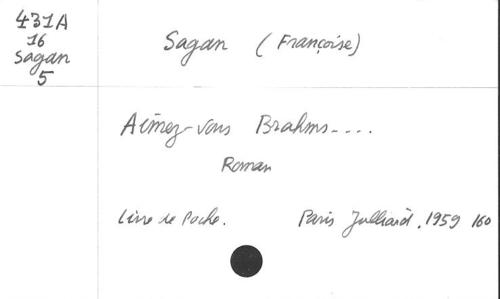 431A
16
Sagan
5
Sagan (Françoise)
Aimez-vous Brahms....
Roman
Livre de Poche. Paris Julliard, 1959 160